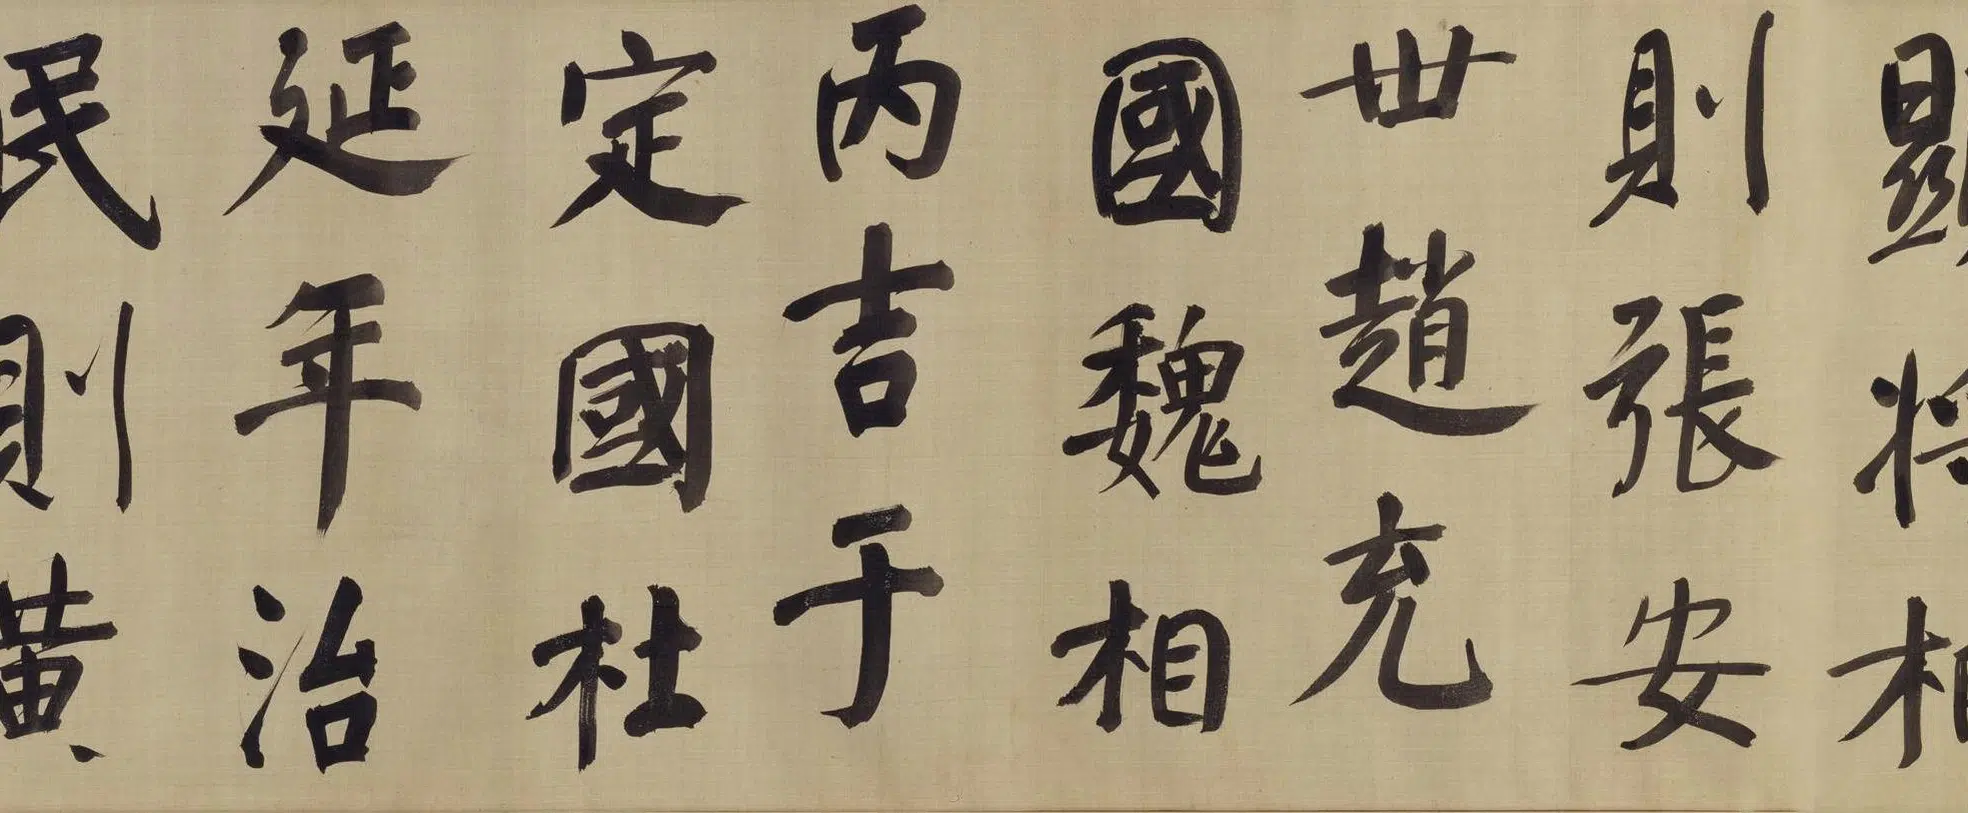 顯将相
則張安
世趙充
國魏相
丙吉于
定國杜
延年治
民則黃